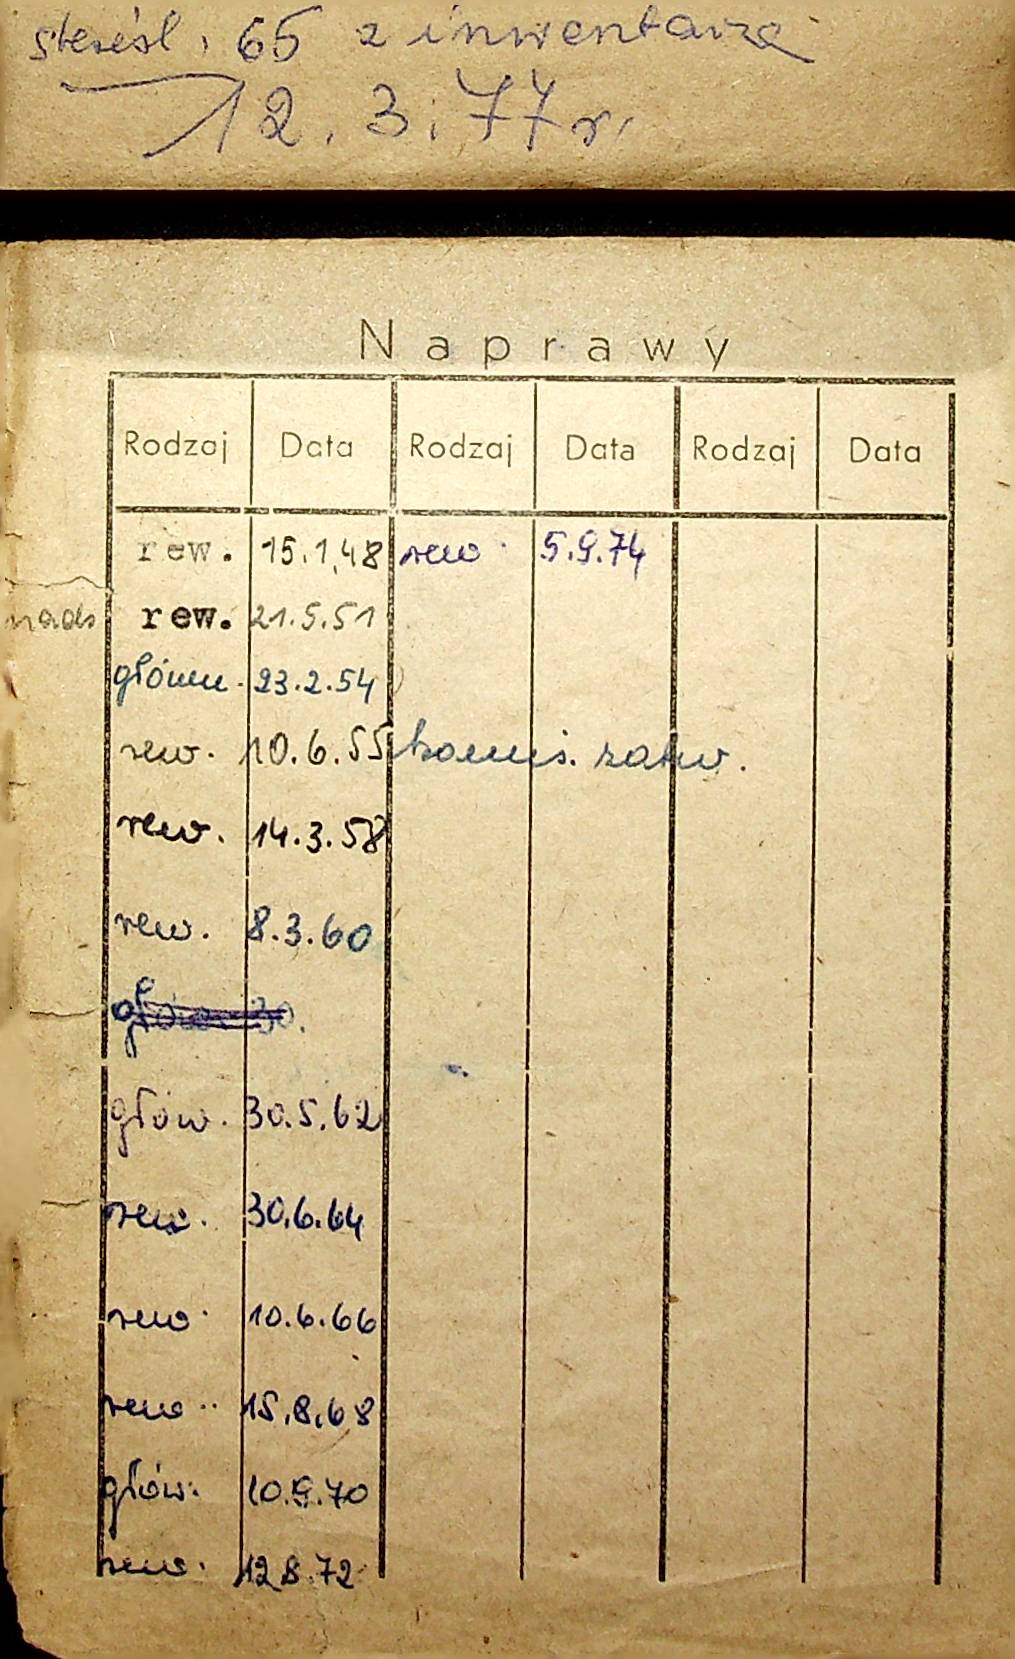 skreśl. 65 z inwentarza
12.3.77 r.
Naprawy
Rodzaj Data Rodzaj Data Rodzaj Data
rew. 15.1.48 rew. 5.9.74
rew. 21.5.51
główn. 23.2.54
rew. 10.6.55 komis. zatw.
rew. 14.3.58
rew. 8.3.60
główn. 30.
głów. 30.5.62
rew. 30.6.64
rew. 10.6.66
rew. 15.8.68
głów. 10.9.70
rew. 12.8.72